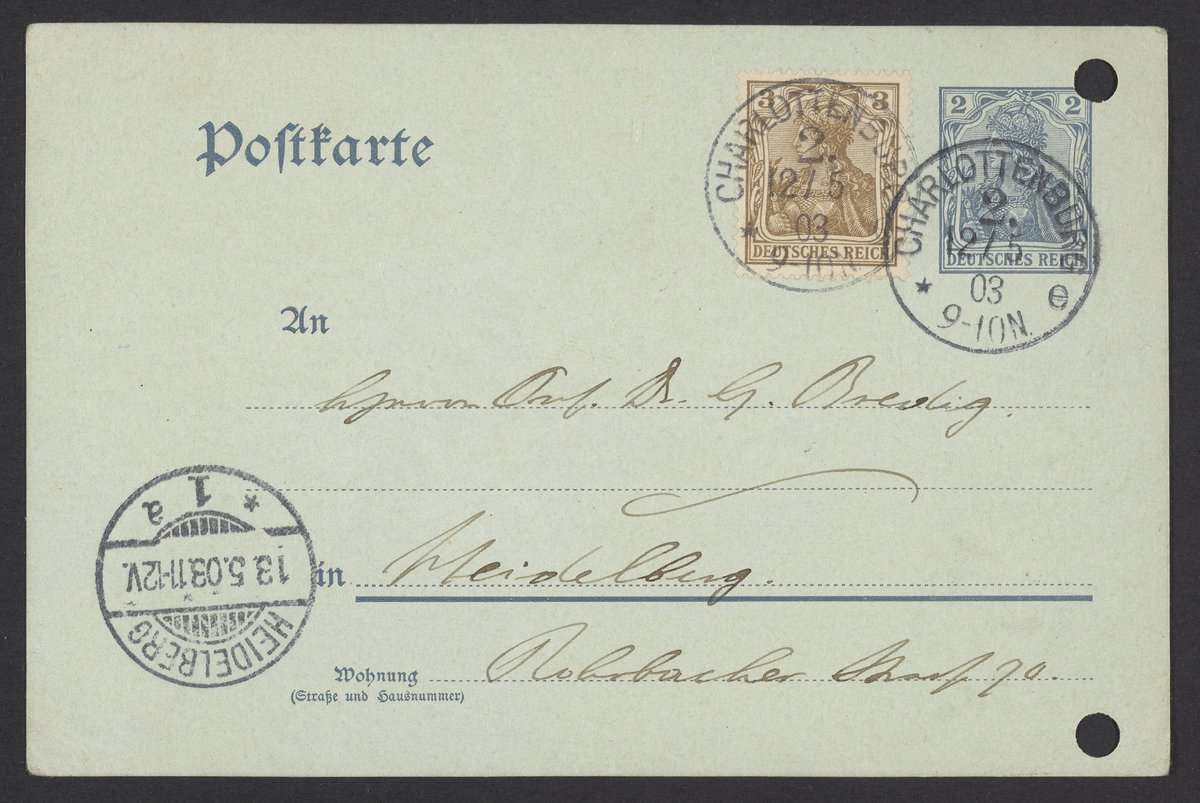 Postkarte
3 3
DEUTSCHES REICH
CHARLOTTENBURG
2.
12/5
03
9-10N.
2 2
DEUTSCHES REICH
CHARLOTTENBURG
2.
12/5
03
9-10N.
* e
An
Herrn Prof. Dr. G. Bredig.
in Heidelberg.
Wohnung Rohrbacher Straße 70.
(Straße und Hausnummer)
HEIDELBERG
13.5.03.11-12V.
* 1 a